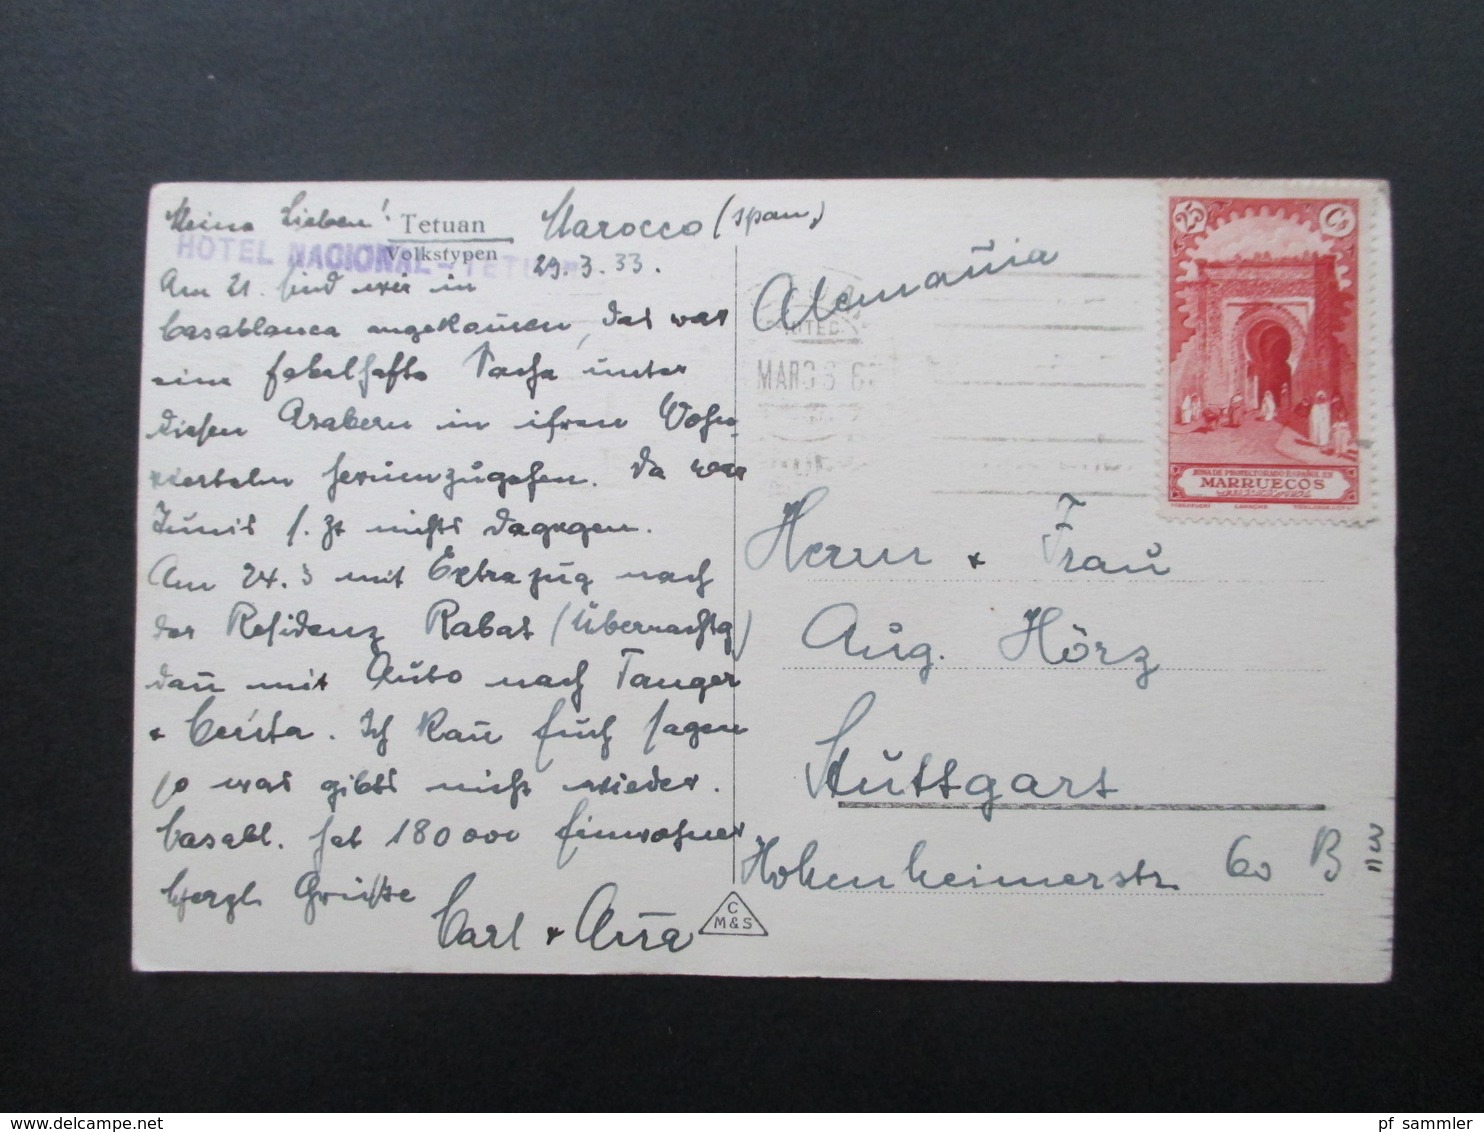 Meine Lieben! Tetuan Marocco (span.)
Volkstypen
HOTEL NACIONAL - TETUAN
29.3.33.
Am 21. sind wir in
Casablanca angekommen, das war
eine fabelhafte Sache unter
diesen Arabern in ihren Wohn
vierteln herumzugehen. Da war
Tunis s. Zt nichts dagegen.
Am 24.3 mit Extrazug nach
der Residenz Rabat (Übernachtg)
dañ mit Auto nach Tanger
+ Ceuta. Ich kañ Euch sagen
so was gibts nicht wieder.
Casabl. hat 180 000 Einwohner
Herzl. Grüsse
Carl + Aña
C
M&S
Alemañia
MAR
25 Cs
ZONA DE PROTECTORADO ESPAÑOL EN
MARRUECOS
Herrn + Frau
Aug. Hörz
Stuttgart
Hohenheimerstr 60 B
pf_sammler